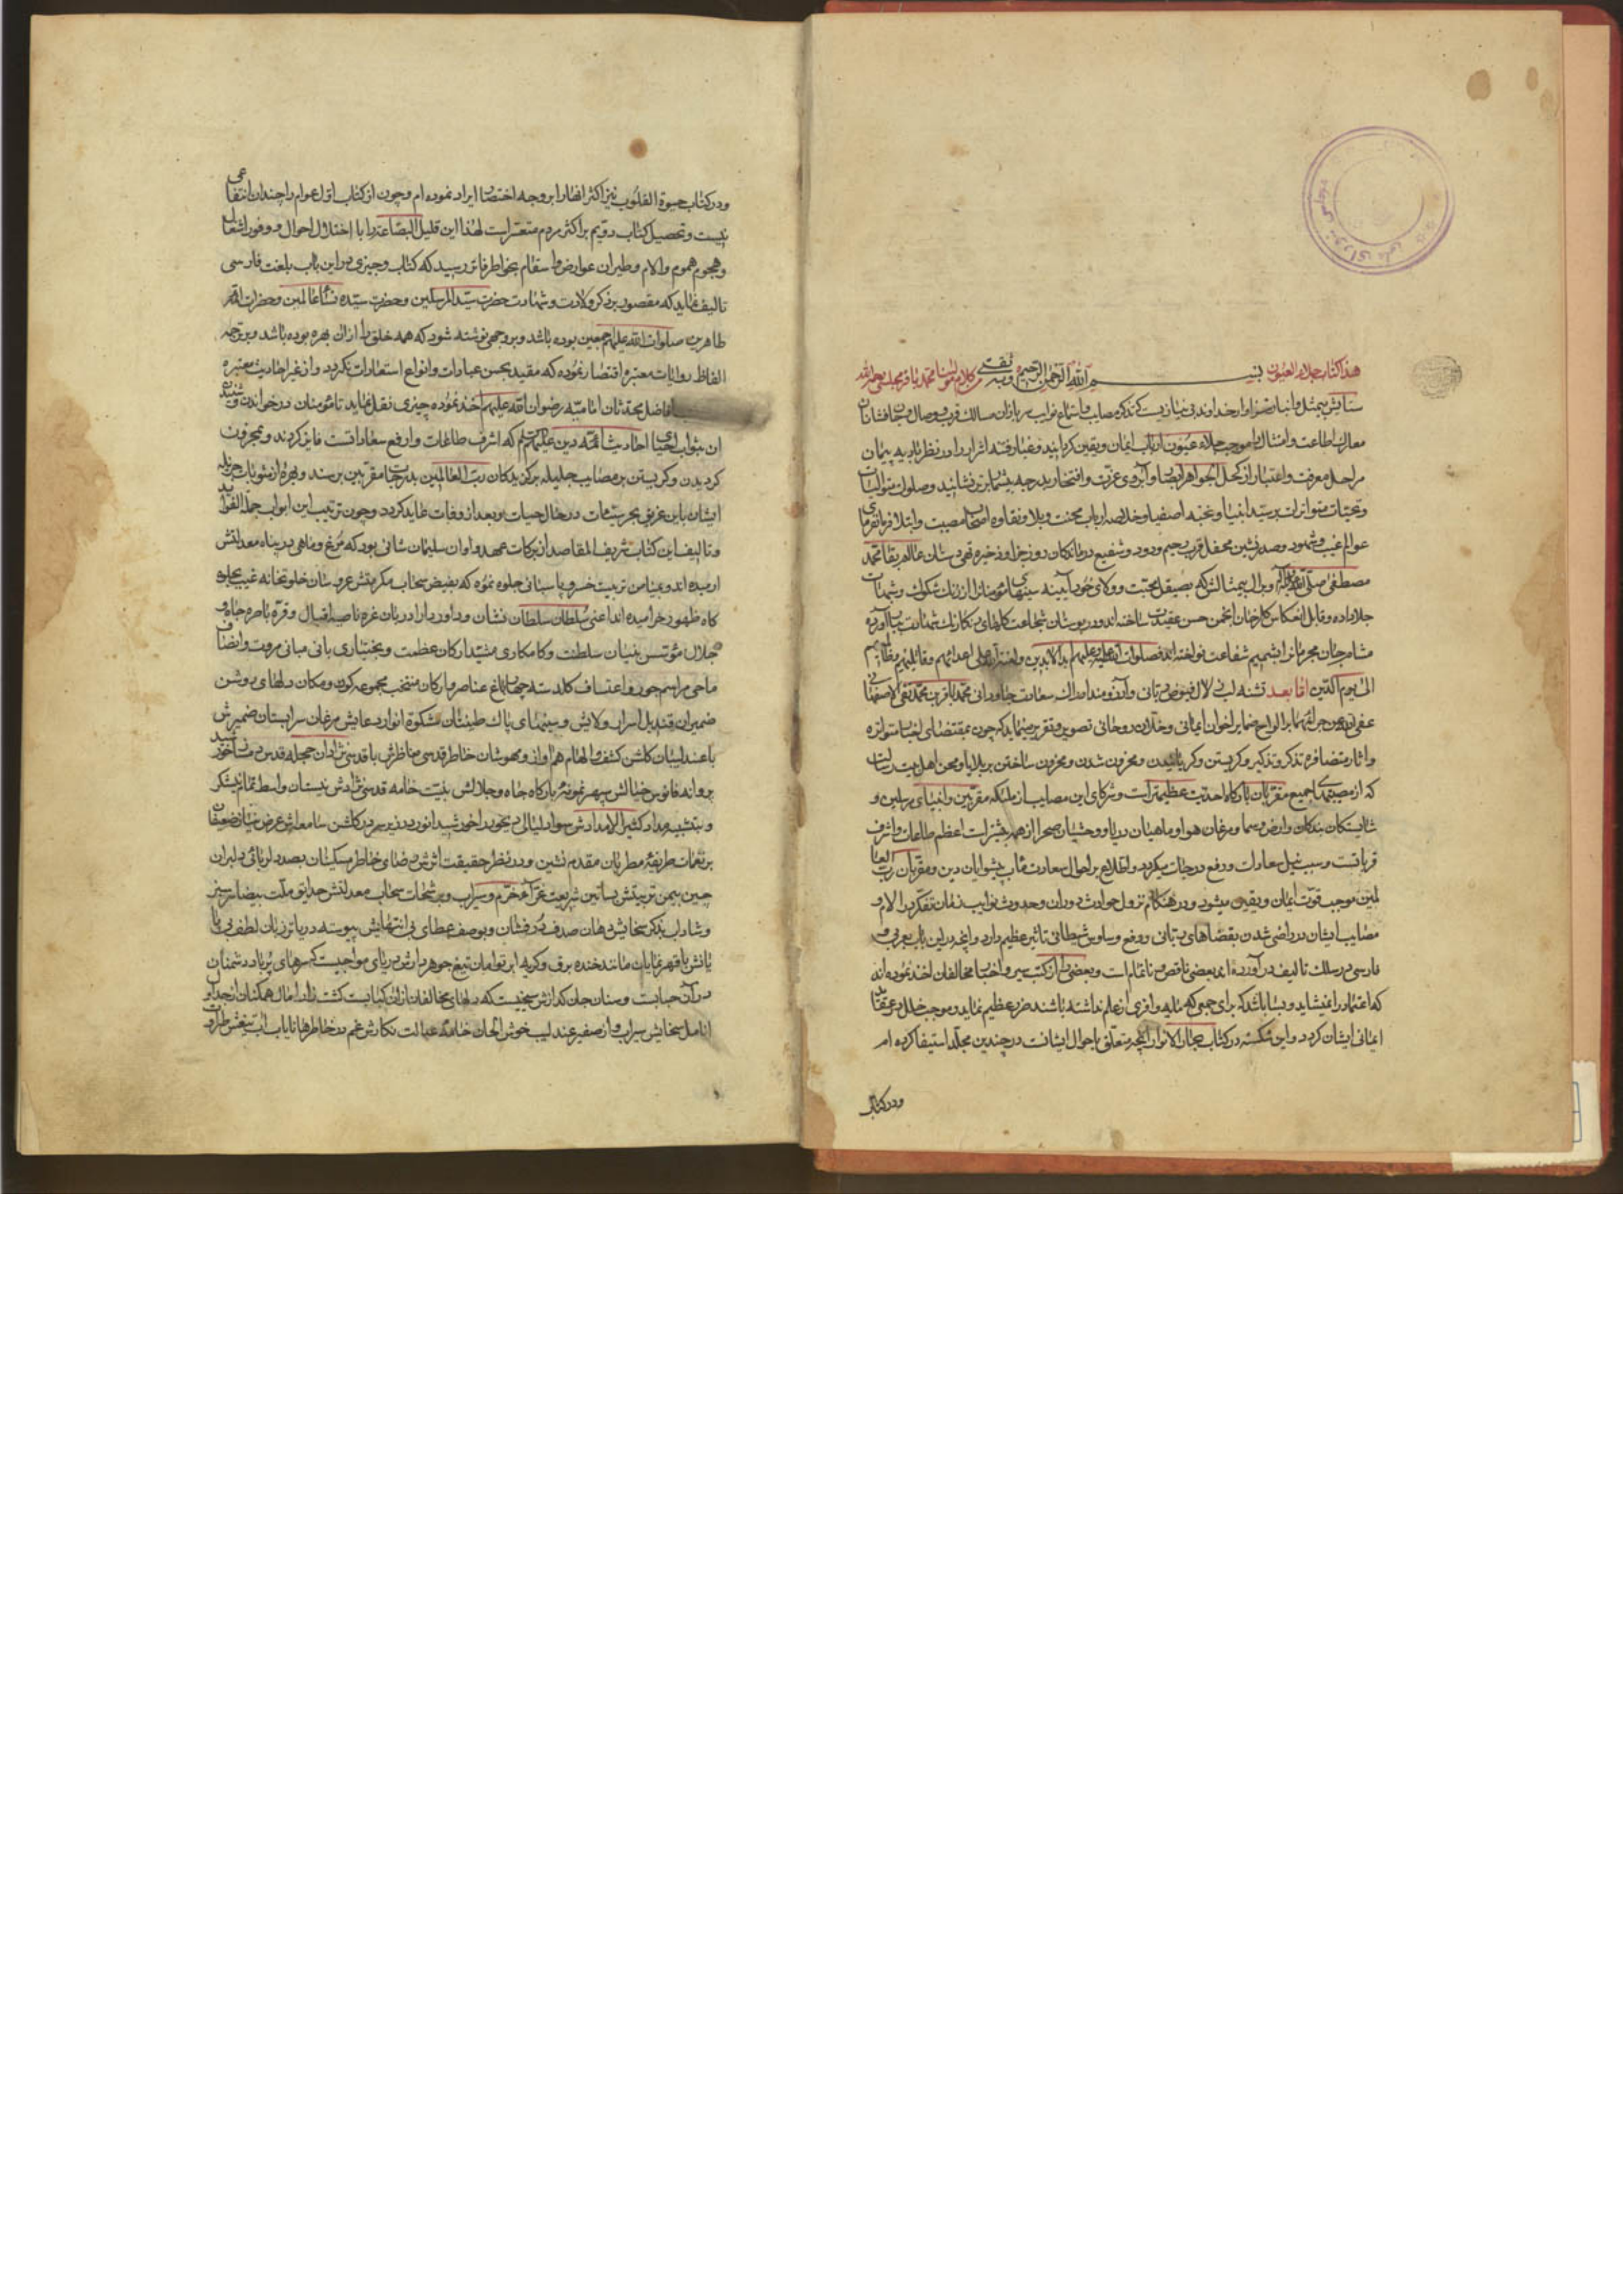 هذا کتاب جلاء العیون بسم الله الرحمن الرحیم وبه ثقتی من کلام مولینا محمد باقر مجلسی رحمه الله
ستایش بیمثل و انباز سزاوار خداوند بی نیازیست که تذکره مصایب و استماع نوایب سربازان مسالک قرب و وصال و جان فشانان
معارک اطاعت و امتثال را موجب جلاء عیون ارباب ایمان و یقین کردانیده و غبار فتنه اثار را در نظر بادیه پیمان
مراحل معرفت و اعتبار از کحل الجواهر ابصار و آبروی عزت و افتخار بدرجه بیشتر نشانید و صلوات متوالیات
و تحیات متواترات بر سید انبیا و نخبه اصفیا و خلاصه ارباب محنت و بلا و نقاوه اصحاب مصیبت و ابتلا فرمانفرمای
عوالم غیب و شهود و صدر نشین محفل قرب رحیم ودود و شفیع درماندکان روز جزا و ذخیره تهی دستان عالم بقا محمد
مصطفی صلی الله علیه وآله و بر آل بیمثالش که بصیقل محبت و ولای خود آیینه سینهای مؤمنان را از زنک شکوک و شبهات
جلا داده و قابل انعکاس کلرخان انجمن حسن عقیدت ساخته اند و در بوستان شجاعت کلهای رنکارنک شهادت ببار آورده
مشام جان مجرمانرا بشمیم شفاعت نواخته اند فصلوات الله علیه وعلیهم ابد الابدین ولعنة الله علی اعدائهم وقاتلیهم وظالمیهم
الی یوم الدین اما بعد تشنه لب زلال فیوض ربانی و آرزومند ادراک سعادت جاودانی محمد باقر بن محمد تقی الاصفهانی
عفی الله عن جرائمهما بر الواح ضمایر اخوان ایمانی و خلان روحانی تصویر و تقریر مینماید که چون بمقتضای اخبار متواتره
و اثار متضافره تذکر و تذکیر و کریستن و کریانیدن و محزون شدن و محزون ساختن بر بلایا و محن اهل بیت رسالت
که از مصیبتهای جمیع مقربان بارکاه احدیت عظیمتر است و شرکای این مصایب از ملئکه مقربین و انبیای مرسلین و
شایستکان بندکان و ارض و سما و مرغان هوا و ماهیان دریا و وحشیان صحرا از همه بیشتر است اعظم طاعات و اشرف
قرباتست و سبب نیل سعادات و رفع درجات میکردد و اطلاع بر احوال سعادت مآب پیشوایان دین و مقربان رب العا
لمین موجب قوت ایمان و یقین میشود و در هنکام نزول حوادث دوران و حدوث نوایب زمان تفکر در الام و
مصایب ایشان در راضی شدن بقضاهای ربانی و رفع وساوس شیطانی تاثیر عظیم دارد و انچه در این باب بعربی و
فارسی در سلک تالیف در آورده اند بعضی ناقص و ناتمام است و بعضی را از کتب سیر و اخبار مخالفان اخذ نموده اند
که اعتماد را نمیشاید و بسا باشد که برای جمعی که مایه وافری از علم نداشته باشند ضرر عظیم نماید و موجب خلل در عقاید
ایمانی ایشان کردد و این شکسته در کتاب بحار الانوار انچه متعلق باحوال ایشانست در چندین مجلد استیفا کرده ام
ودر کتاب
ودر کتاب حیوة القلوب نیز اکثر انها را بر وجه اختصار ایراد نموده ام و چون از کتاب اول عوام را چندان انتفاعی
نیست و تحصیل کتاب دویم بر اکثر مردم متعسر است لهذا این قلیل البضاعه را با اختلال احوال و وفور اشغال
و هجوم هموم و الام و طیران عوارض و اسقام بخاطر فاتر رسید که کتاب وجیزی در این باب بلغت فارسی
تالیف نماید که مقصور بر ذکر ولادت و شهادت حضرت سید المرسلین و حضرت سیده نساء عالمین و حضرات ائمه
طاهرین صلوات الله علیهم اجمعین بوده باشد و بر وجهی نوشته شود که همه خلق را از ان بهره بوده باشد و بر ترجمه
الفاظ روایات معتبره اقتصار نموده که مقید بحسن عبارات و انواع استعارات نکردد و از غیر احادیث معتبره
افاضل محدثان امامیه رضوان الله علیهم اخذ نموده چیزی نقل ننماید تا مؤمنان در خواندن و شنیدن
ان بثواب احیای احادیث ائمه دین علیهم السلم که اشرف طاعات و ارفع سعاداتست فایز کردند و بمحزون
کردیدن و کریستن بر مصایب جلیله برکزیدکان رب العالمین بدرجات مقربین برسند و بهره از مثوبات جزیله
ایشان باین غریق بحر سیئات در حال حیات و بعد از وفات عاید کردد و چون ترتیب این ابواب جمة الفواید
و تالیف این کتاب شریف المقاصد از برکات عهد و اوان سلیمان شانی بود که مرغ و ماهی در پناه معدلتش
ارمیده اند و بمیامن تربیت خسرو پاسبانی جلوه نموده که بفیض سحاب مکرمتش عروسان خلوتخانه غیب بجلوه
کاه ظهور خرامیده اند اعنی سلطان سلطان نشان و داور دارا دربان غره ناصیه اقبال و قره باصره جاه و
جلال مؤسس بنیان سلطنت و کامکاری مشید ارکان عظمت و بختیاری بانی مبانی مروت و انصاف
ماحی مراسم جور و اعتساف کلدسته چهار باغ عناصر و ارکان منتخب مجموعه کون و مکان دلهای روشن
ضمیران قندیل اسراب ولایش و سینهای پاک طینتان مشکوة انوار دعایش مرغان سرابستان ضمیرش
با عندلیبان کلشن کشف و الهام هم آواز و مهوشان خاطر قدسی مناظرش با قدسی نژادان حجله قدس دمساز خورشید
پروانه فانوس خیالش سپهر نمونه بارکاه جاه و جلالش بنیت خامه قدسی نژادش نیستان واسط تمام نیشکر
و بتشبیه مداد کثیر الامدادش سواد لیالی در نجوید اخورشید انور در زیر سر در کلشن سامعه اش عرض نیاز ضعیفان
بر نغمات طریفه مطربان مقدم نشین و در نظر حقیقت اثرش رضای خاطر مسکینان بصد دلربائی دلبران
چین بیمن تربیتش بساتین شریعت غرا خرم و سیراب و برشحات سحاب معدلتش حدایق ملت بیضا سر سبز
و شاداب بذکر سخایش دهان صدف در فشان و بوصف عطای بی انتهایش پیوسته دریا تر زبان لطف بی پا
یانش با قهر نمایان مانند خنده برق و کریه ابر توامان تیغ جوهر دارش دریای مواجیست که سرهای پر باد دشمنان
در آن حبابست و سنان جان کدازش سیخیست که دلهای مخالفان از ان کبابست کشت زار امال همکنان از جداول
انامل سخایش سیراب و از صفیر عندلیب خوش الحان خامه عدالت نکارش غم در خاطرها نایاب